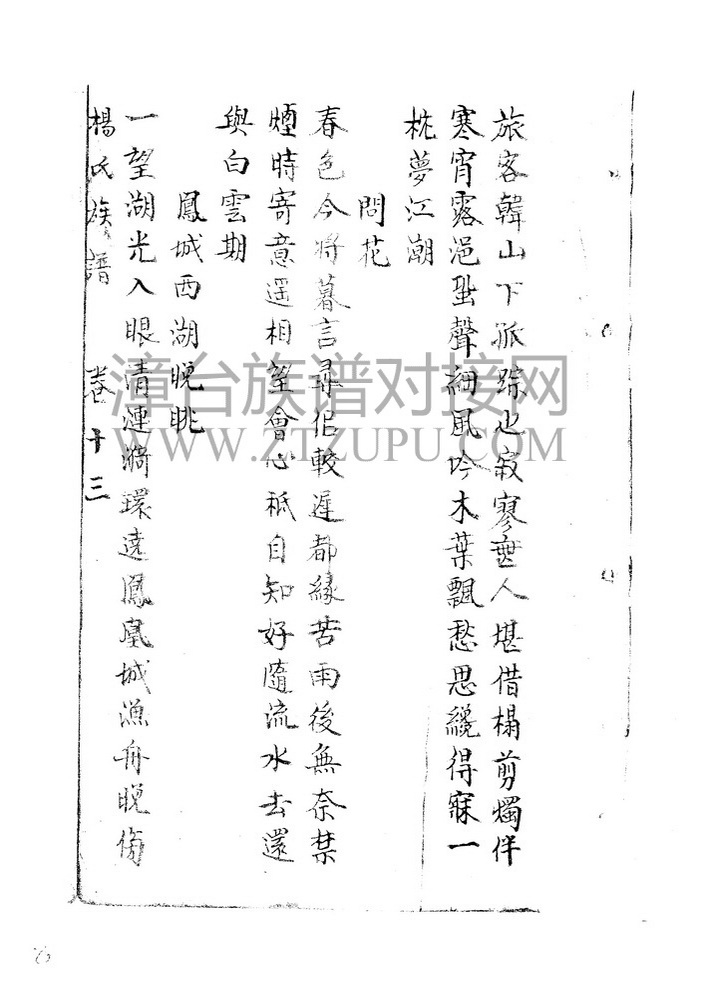 旅客韓山下孤踪也寂寥無人堪借榻剪燭伴
寒宵露浥蛩聲細風吟木葉飄愁思纔得寐一
枕夢江潮
問花
春色今将暮言尋佀較遲都緣苦雨後無奈禁
煙時寄意遥相望會心祗自知好隨流水去還
與白雲期
鳳城西湖晚眺
一望湖光入眼清漣漪環遶鳳凰城漁舟晚傍
楊氏族譜 卷十三
漳台族谱对接网
WWW.ZTZUPU.COM